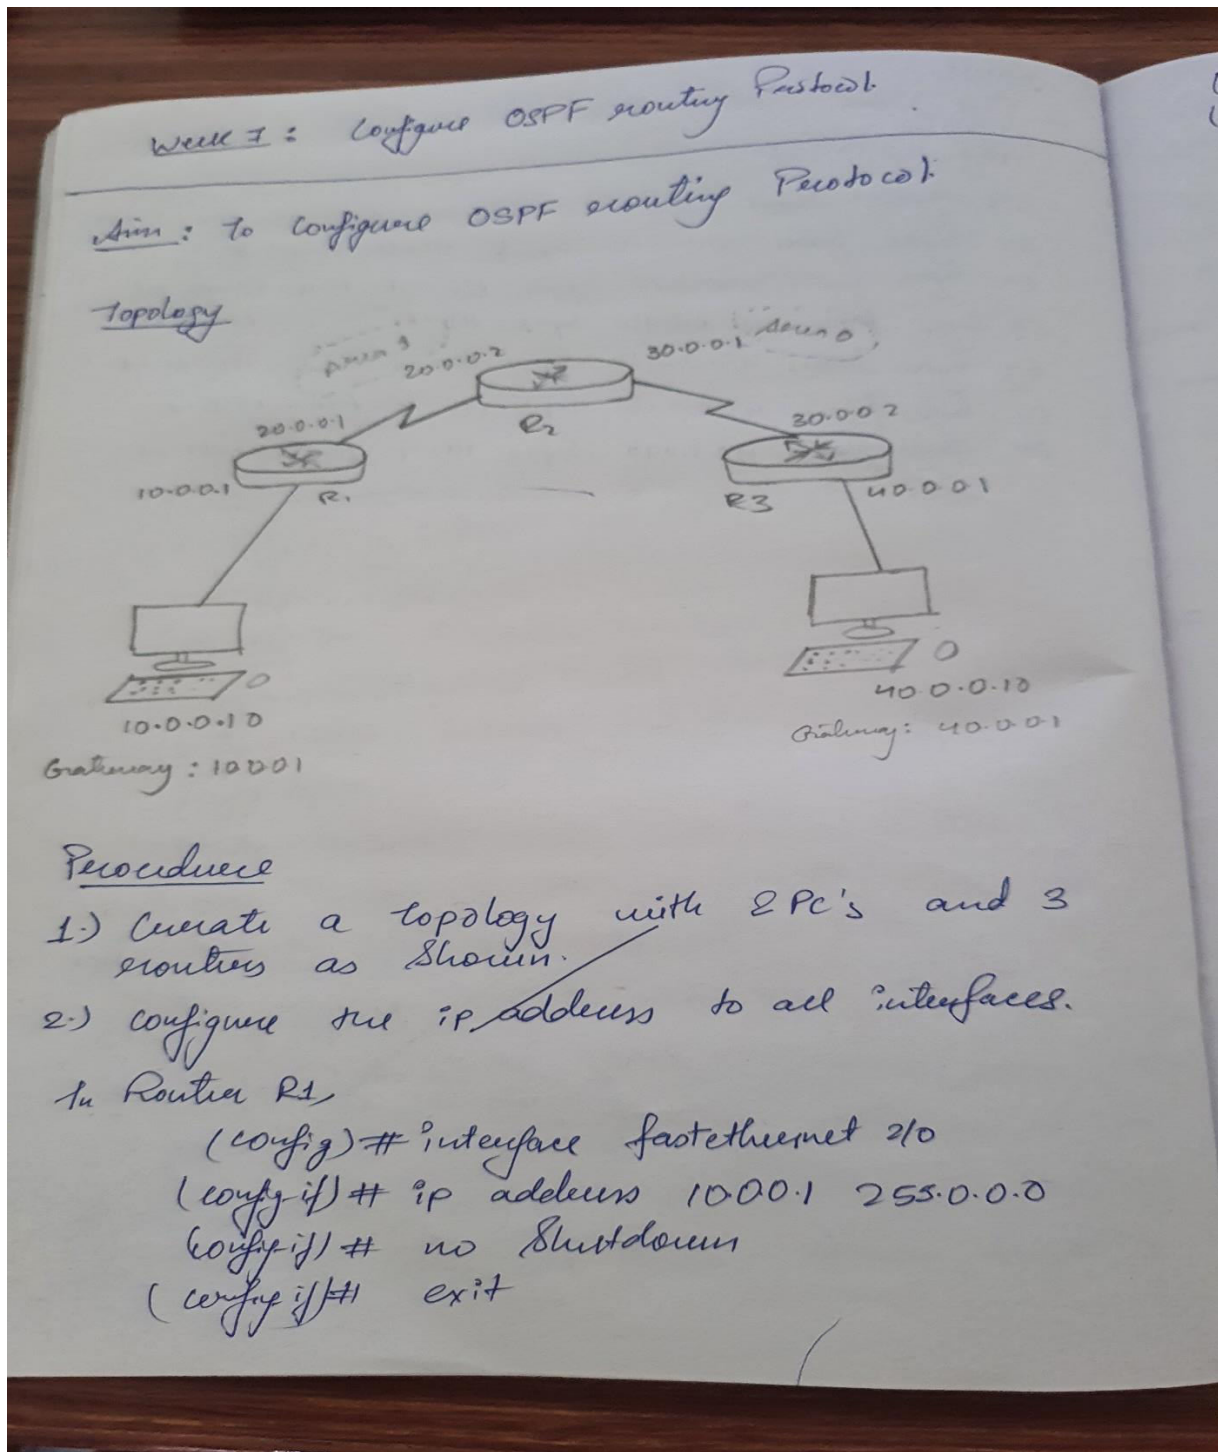 Week 7 : Configure OSPF routing Protocol.
Aim : To Configure OSPF routing Protocol.
Topology
Area 1
20.0.0.2
30.0.0.1
Area 0
20.0.0.1
R2
30.0.0 2
10.0.0.1
R1
R3
40.0.0 1
10.0.0.10
40 0.0.10
Gateway : 10001
Gateway: 40.0.01
Procedure
1.) Create a topology with 2 PC's and 3
routers as Shown.
2.) configure the ip address to all interfaces.
In Router R1,
(config) # interface fastethernet 2/0
(config-if) # ip address 10.0.0.1 255.0.0.0
(config-if) # no Shutdown
(config-if) # exit